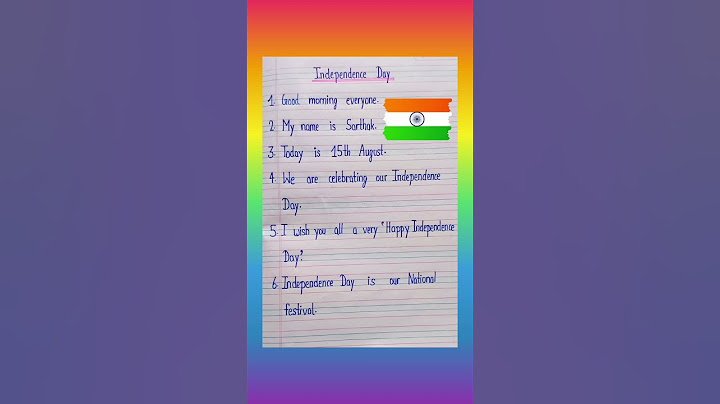 Independence Day
1. Good morning everyone.
2. My name is Sarthak.
3. Today is 15th August.
4. We are celebrating our Independence
Day.
5. I wish you all a very 'Happy Independence
Day'.
6. Independence Day is our National
festival.